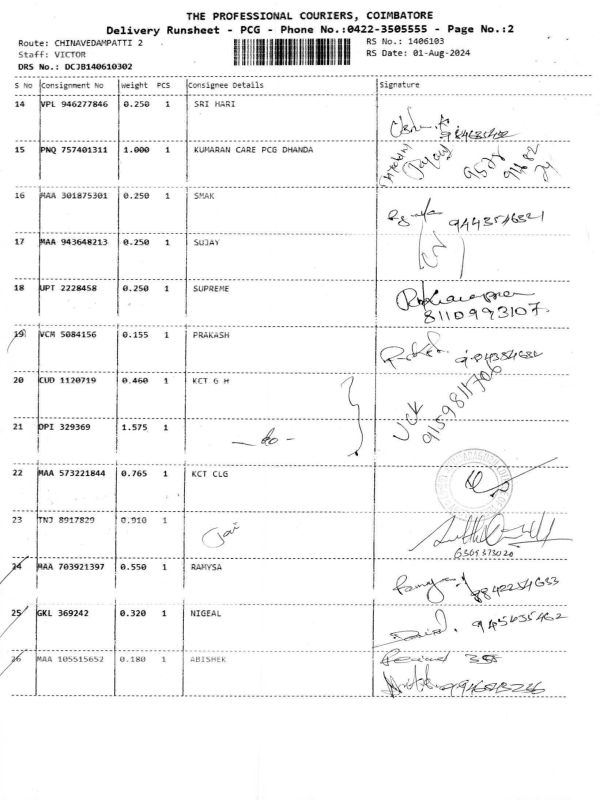 THE PROFESSIONAL COURIERS, COIMBATORE
Delivery Runsheet - PCG - Phone No.:0422-3505555 - Page No.:2
Route: CHINAVEDAMPATTI 2 RS No.: 1406103
Staff: VICTOR RS Date: 01-Aug-2024
DRS No.: DCJB140610302
S No Consignment No Weight PCS Consignee Details Signature
14 VPL 946277846 0.250 1 SRI HARI
15 PNQ 757401311 1.000 1 KUMARAN CARE PCG DHANDA
9578
9482
24
16 MAA 301875301 0.250 1 SMAK
9443546321
17 MAA 943648213 0.250 1 SUJAY
18 UPT 2228458 0.250 1 SUPREME
8110993107
19 VCM 5084156 0.155 1 PRAKASH
20 CUD 1120719 0.460 1 KCT G H
UCK
9159811706
21 DPI 329369 1.575 1 - do -
22 MAA 573221844 0.765 1 KCT CLG
23 TNJ 8917829 0.910 1 Jai
6369373020
24 MAA 703921397 0.550 1 RAMYSA
Ramya
9842254633
25 GKL 369242 0.320 1 NIGEAL
9455635462
26 MAA 105515652 0.180 1 ABISHEK